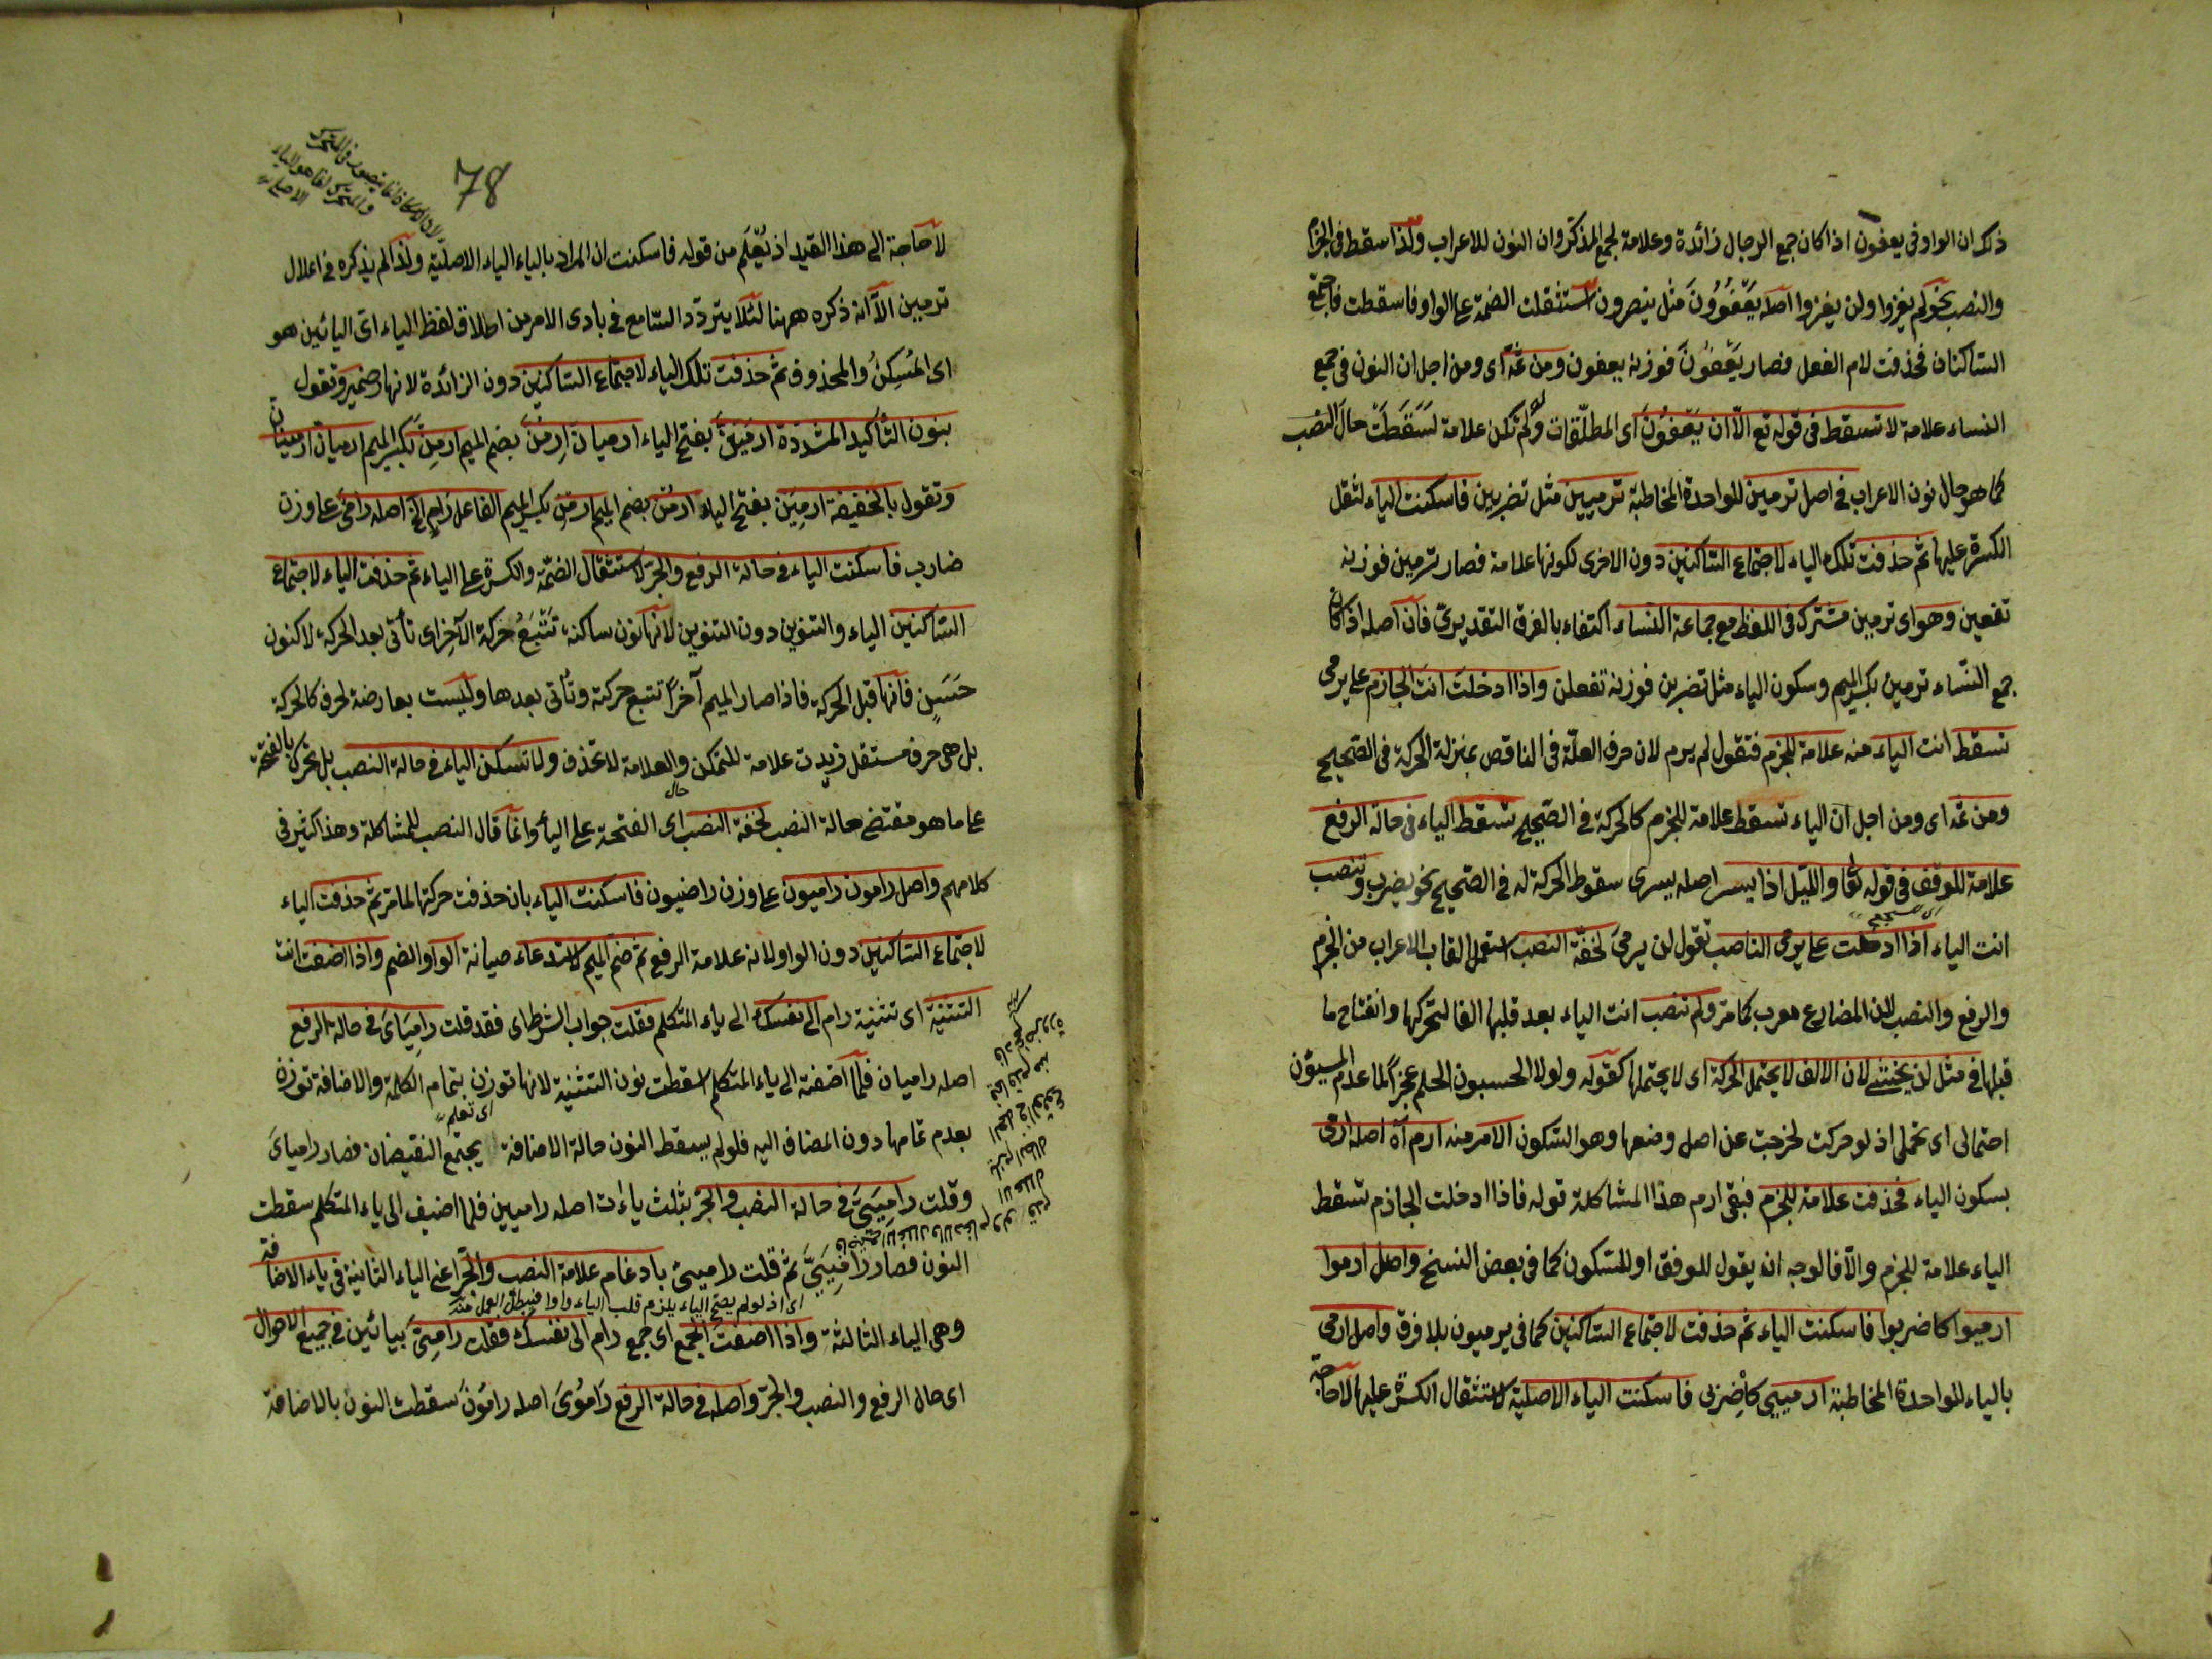 ذلك ان الواو في يعفون اذا كان جمع الرجال زائدة وعلامة لجمع المذكر وان النون للاعراب ولذا سقط في الجزم
والنصب نحو لم يغزوا ولن يغزوا اصله يَعْفُوُونَ مثل ينصرون استثقلت الضمة على الواو فاسقطت فاجتمع
الساكنان فحذفت لام الفعل فصار يَعْفُونَ فوزنه يعفون ومن ثمّه اى ومن اجل ان النون في جمع
النساء علامة لا تسقط في قوله تع الّا ان يَعْفُونَ اى المطلّقات ولو لم تكن علامة لَسَقَطَتْ حال النصب
كما هو حال نون الاعراب في اصل ترمين للواحدة المخاطبة ترميين مثل تضربين فاسكنت الياء لثقل
الكسرة عليها ثم حذفت تلك الياء لاجتماع الساكنين دون الاخرى لكونها علامة فصار ترمين فوزنه
تفعين وهو اى ترمين مشترك في اللفظ مع جماعة النساء اكتفاء بالفرق التقديريّ فان اصله اذا كان
جمع النساء ترمين بكسر الميم وسكون الياء مثل تضربن فوزنه تفعلن واذا ادخلت انت الجازم على يرمى
تسقط انت الياء منه علامة للجزم فتقول لم يرم لان حرف العلّة في الناقص بمنزلة الحركة في الصحيح
ومن ثمه اى ومن اجل ان الياء تسقط علامة للجزم كالحركة في الصحيح تسقط الياء في حالة الرفع
علامة للوقف في قوله تعا والليل اذا يسر اصله يسرى سقوط الحركة له في الصحيح نحو يضرب وتنصب
انت الياء اذا ادخلت على يرمى الناصب تقول لن يرمىَ لخفّة النصب استعمل القاب الاعراب من الجزم
والرفع والنصب لان المضارع معرب كما مر ولم تنصب انت الياء بعد قلبها الفا لتحركها وانفتاح ما
قبلها في مثل لن يخشى لان الالف لا يحتمل الحركة اى لا يحتملها كقوله ولولا الحسبون الحلم عجزاً لما عدم المسيؤن
احتمالى اى تحملى اذ لو حركت لخرجت عن اصل وضعها وهو السكون الامر منه ارم آه اصله ارمى
بسكون الياء فحذفت علامة للجزم فبقى ارم هذا المشاكلة قوله فاذا ادخلت الجازم تسقط
الياء علامة للجزم والّا فالوجه ان يقول للوقف او للسكون كما في بعض النسخ واصل ارموا
ارميوا كاضربوا فاسكنت الياء ثم حذفت لاجتماع الساكنين كما في يرميون بلا فرق واصل ارمى
بالياء للواحدة المخاطبة ارميى كاضربى فاسكنت الياء الاصلية لاستثقال الكسرة عليها لا حاجة
78
لا حاجة الى هذا القيد اذ يُعْلَم من قوله فاسكنت ان المراد بالياء الياء الاصلية ولذا لم يذكره في اعلال
ترمين الّا انه ذكره ههنا لئلا يتردّد السامع في بادى الامر من اطلاق لفظ الياء اىّ اليائين هو
اى المُسكِنُ والمحذوف ثم حذفت تلك الياء لاجتماع الساكنين دون الزائدة لانها ضمير وتقول
بنون التأكيد المشددة ارمينّ بفتح الياء ارميانّ ارمُنّ بضم الميم ارمِنّ بكسر الميم ارميانّ ارمينانّ
وتقول بالخفيفة ارمِيَن بفتح الياء ارمُن بضم الميم ارمِن بكسر الميم الفاعل رامٍ الخ اصله رامىٌ على وزن
ضارب فاسكنت الياء في حالة الرفع والجرّ لاستثقال الضمّة والكسرة على الياء ثم حذفت الياء لاجتماع
الساكنين الياء والتنوين دون التنوين لانها نون ساكنة تَتْبَعُ حركة الآخر اى تأتى بعد الحركة لا كنون
حَسَنٍ فانها قبل الحركة فاذا صار الميم آخراً تتبع حركته وتأتى بعدها وليست بعارضة لحرف كالحركة
بل هى حرف مستقل زيدت علامة للتمكن والعلامة لا تحذف ولا تسكن الياء في حالة النصب بل تحرك بالفتحة
على ما هو مقتضى حالة النصب لخفة النصب اى الفتحة على الياء وانما قال النصب للمشاكلة وهذا كثير في
كلامهم واصل رامون راميون على وزن راضيون فاسكنت الياء بان حذفت حركتها لما مر ثم حذفت الياء
لاجتماع الساكنين دون الواو لانه علامة الرفع ثم ضم الميم لاستدعاء صيانة الواو الضم واذا اضفت انت
التثنية اى تثنية رام الى نفسك الى ياء المتكلم فقلت جواب الشرط اى فقد قلت رامِيَاىَ في حالة الرفع
اصله راميان فلما اضفته الى ياء المتكلم اسقطت نون التثنية لانها توزن بتمام الكلمة والاضافة توزن
بعدم تمامها دون المضاف اليه فلو لم يسقط النون حالة الاضافة يجتمع النقيضان فصار رامياىَ
وقلت رامِيَىَّ في حالة النصب والجرّ بثلث ياءٰت اصله راميين فلما اضيف الى ياء المتكلم سقطت
النون فصار رامِيَىَّ ثم قلت راميىّ بادغام علامة النصب والجرّ اعنى الياء الثانية في ياء الاضافة
اى اذ لو لم يصح الياء يلزم قلب الياء واوا فيبطل العمل منه
وهى الياء الثالثة واذا اضفت الجمع اى جمع رام الى نفسك فقلت رامِىَّ بيائين في جميع الاحوال
اى حال الرفع والنصب والجرّ واصله في حالة الرفع رَامُوىَ اصله رامُونَ سقطت النون بالاضافة